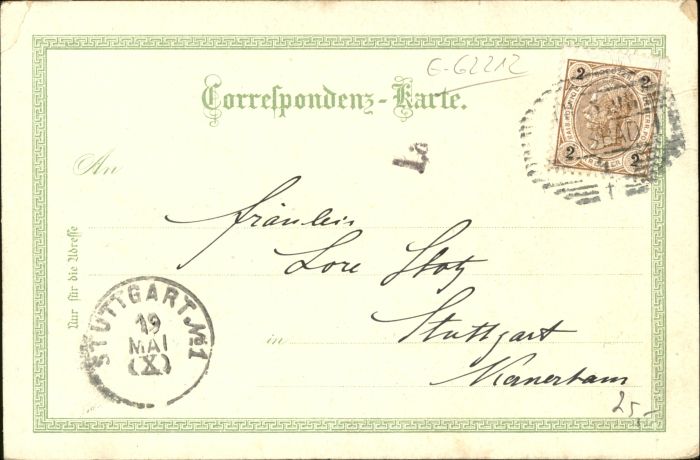 E-62212
Correspondenz-Karte.
2 2
2 2
An
La
Nur für die Adresse
Fräulein
Lore Stotz
in Stuttgart
STUTTGART No1
19
MAI
(X)
25,-